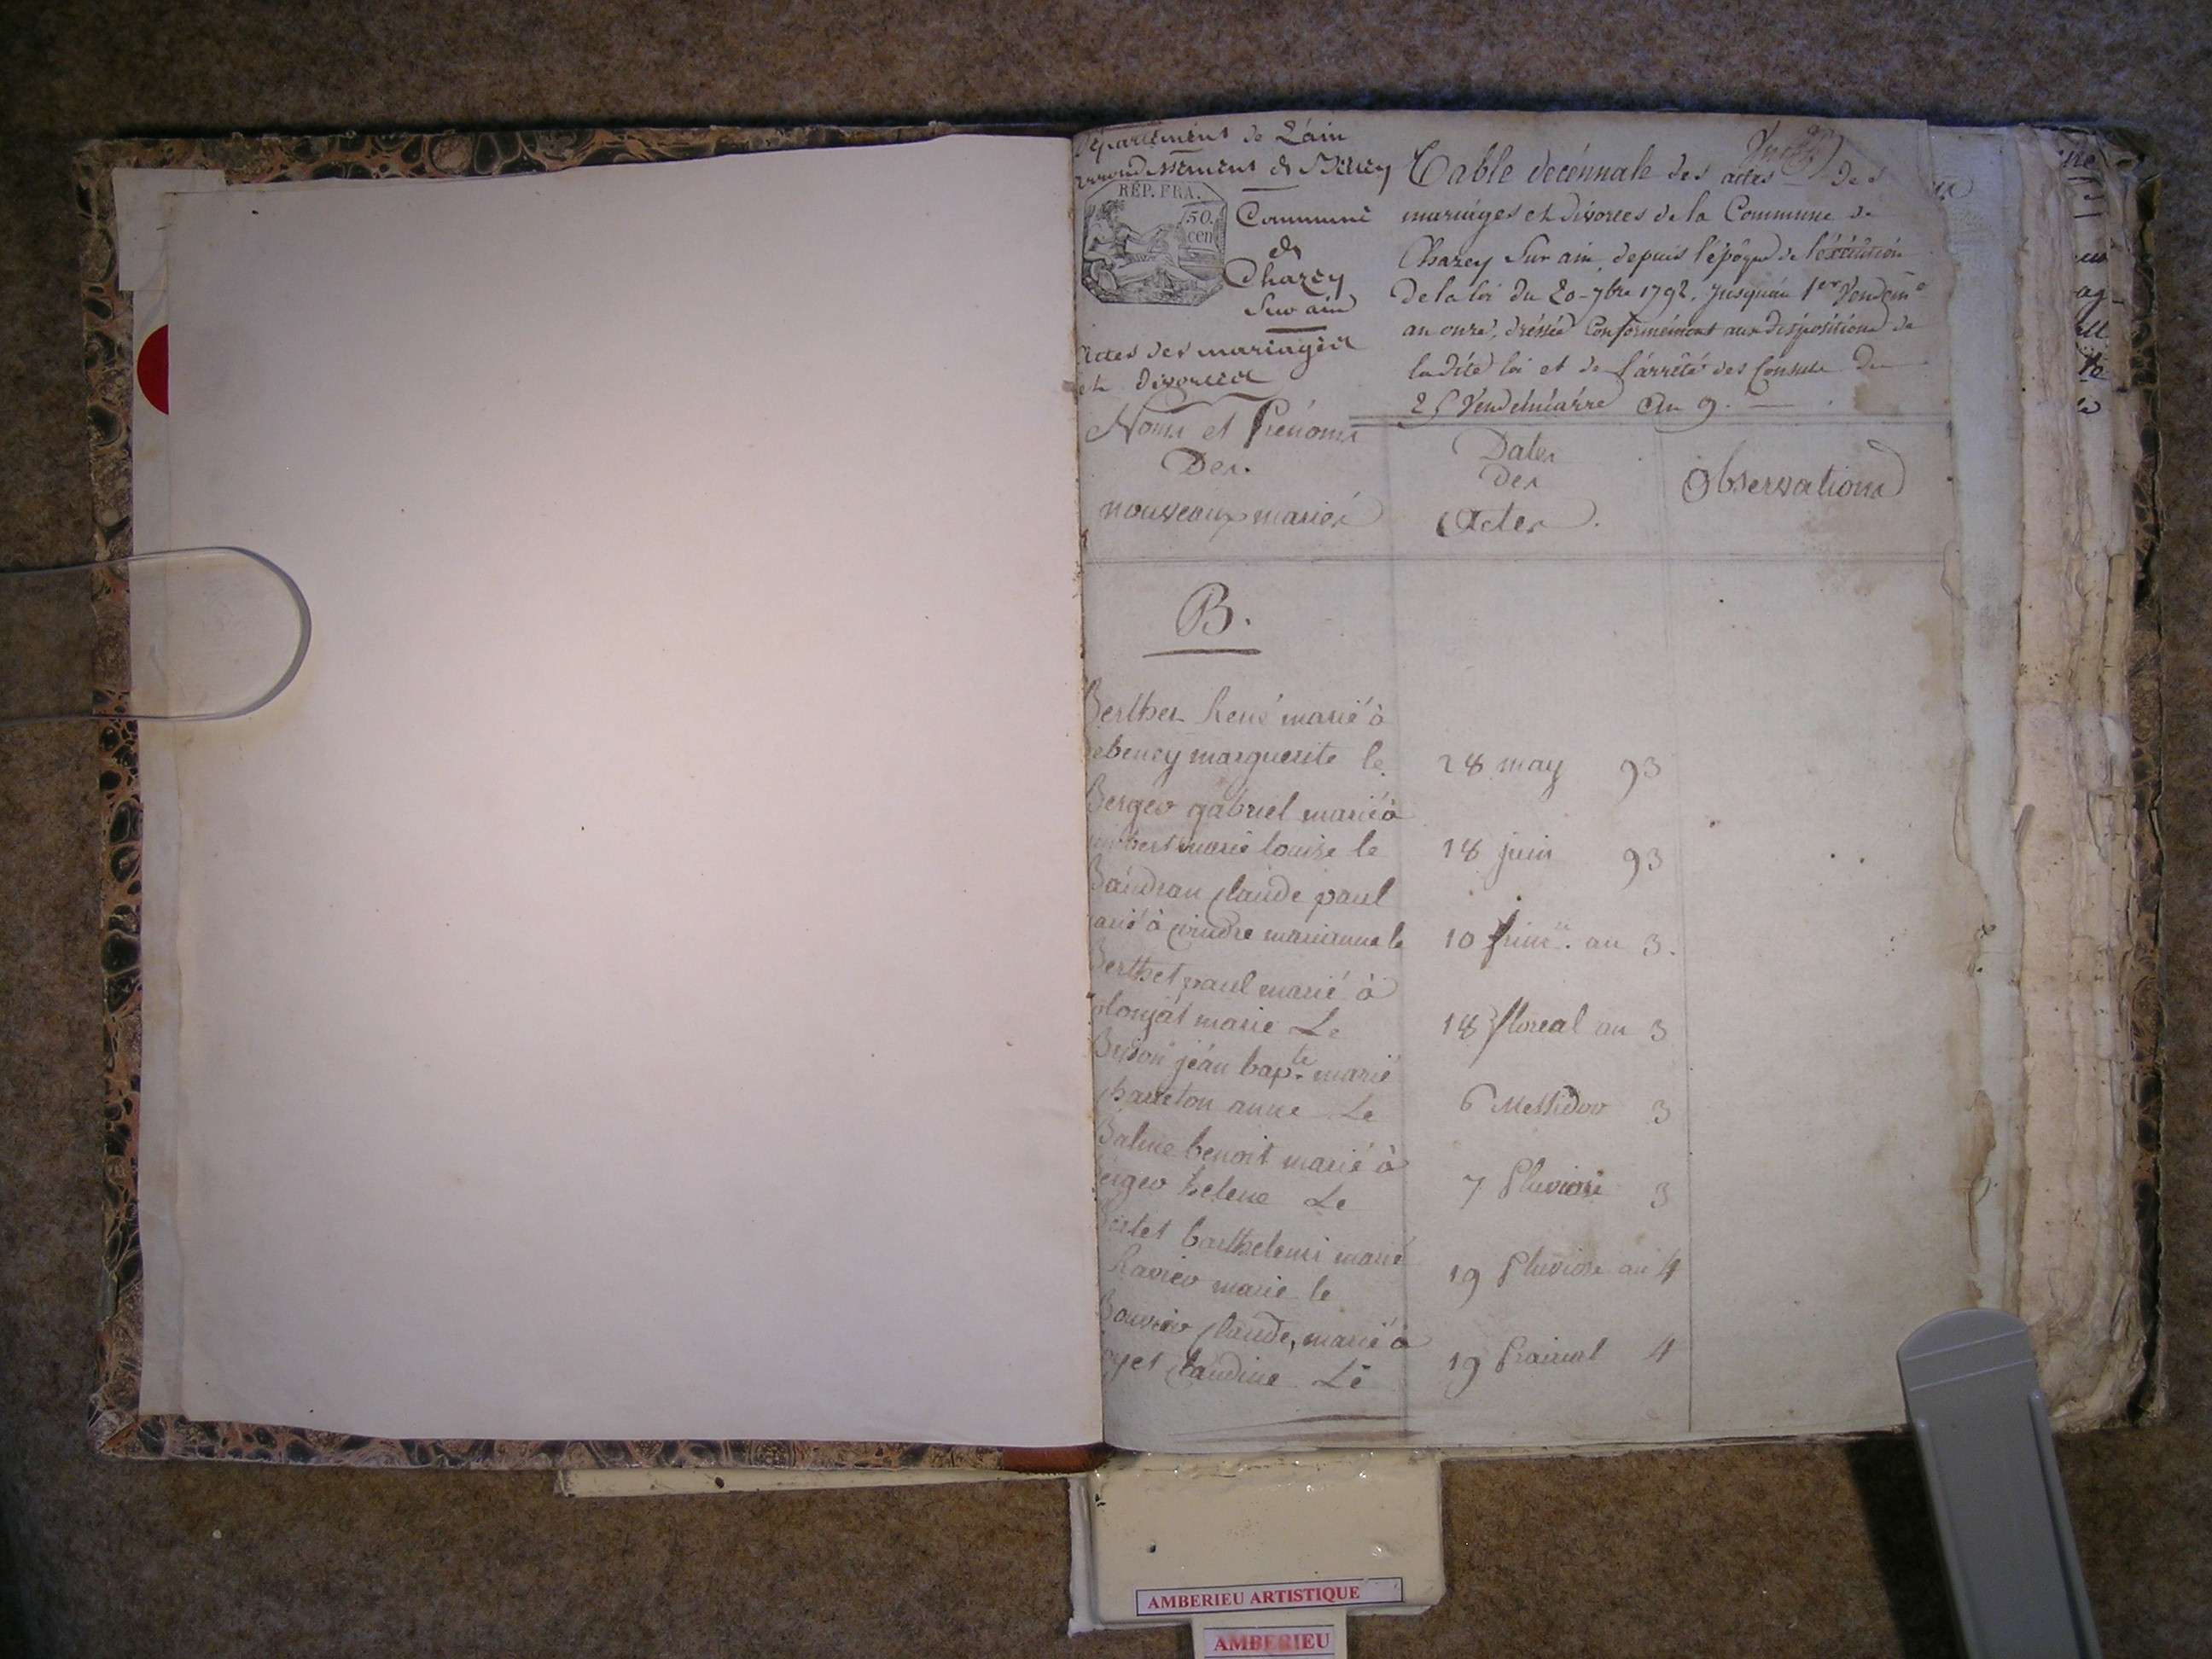 Département de L'ain
arrondissement de Belley
RÉP. FRA.
50.
cen
Commune
de
Chazey
Sur ain
Actes des mariages
et Divorces
Table decénnale des actes des
mariages et divorces de la Commune de
Chazey Sur ain, depuis l'époque de l'éxécution
de la loi du 20 7bre 1792. Jusquau 1er Vendem.e
an onze, dréssée Conformément aux dispositions de
ladite loi et de l'arrêté des Consuls du
25 Vendemiairre An 9.
Noms et Prénoms
Des
nouveaux mariés
Dates
des
Actes.
Observations
B.
Berthet René marié à
debeney marguerite le 28 may 93
Berger gabriel marié à
marie louise le 18 juin 93
Baudran Claude paul
marié à marianne le 10 frim.re an 3.
Berthet paul marié à
marie Le 18 floreal an 3
jean bap.te marié
anne Le 6 Messidor 3
Balme benoit marié à
Berger helene Le 7 Pluviose 3
barthelemi marié
Ravier marie le 19 Pluviose an 4
Bouvier Claude, marié à
Claudine Le 19 Prairial 4
AMBERIEU ARTISTIQUE
AMBERIEU